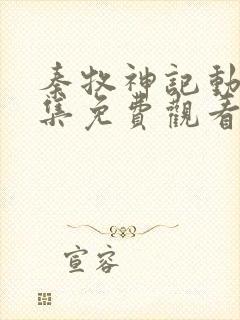 秦牧神記動
集免費觀看
宣容